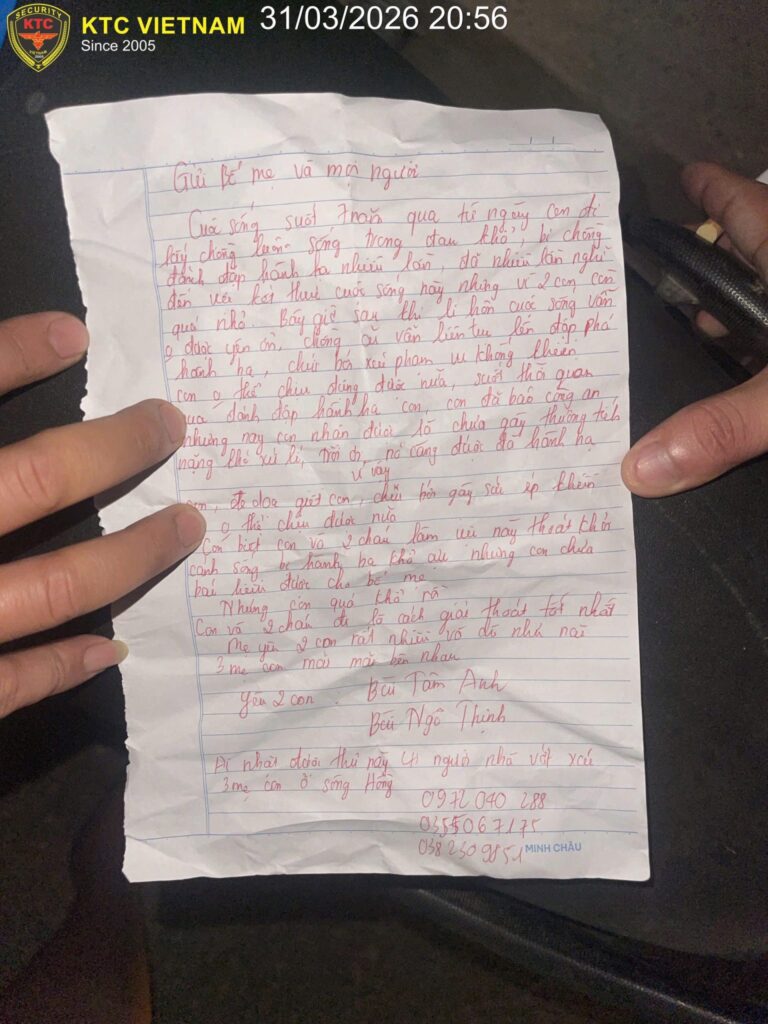 KTC VIETNAM
Since 2005
31/03/2026 20:56
SECURITY
KTC
Gửi Bố mẹ và mọi người
Cuộc sống suốt 7 năm qua từ ngày con đi
lấy chồng luôn sống trong đau khổ, bị chồng
đánh đập hành hạ nhiều lần, đã nhiều lần nghĩ
đến việc kết thúc cuộc sống này nhưng vì 2 con còn
quá nhỏ. Bây giờ sau khi li hôn cuộc sống vẫn
o được yên ổn, chồng cũ vẫn liên tục đập phá
hành hạ, chửi bới xúc phạm
con o thể chịu đựng được nữa, suốt thời gian
qua đánh đập hành hạ con, con đã báo công an
nhưng nay con nhận được là chưa gây thương tích
nặng khó xử lí, trời ơi, nó càng được đà hành hạ
vì vậy
con, đe doạ giết con, chửi bới gây sức ép khiến
o thể chịu được nữa
Con biết con và 2 cháu làm việc này thoát khỏi
cảnh sống bị hành hạ khổ cực nhưng con chưa
báo hiếu được cho bố mẹ
Nhưng con quá khổ rồi
Con và 2 cháu đi là cách giải thoát tốt nhất
Mẹ yêu 2 con rất nhiều và dù như nào
3 mẹ con mãi mãi bên nhau
Yêu 2 con : Bùi Tâm Anh
Bùi Ngô Thịnh
Ai nhặt được thư này người nhà vớt xác
3 mẹ con ở sông Hồng
0972 040 288
0355067175
038 230 9851
MINH CHÂU